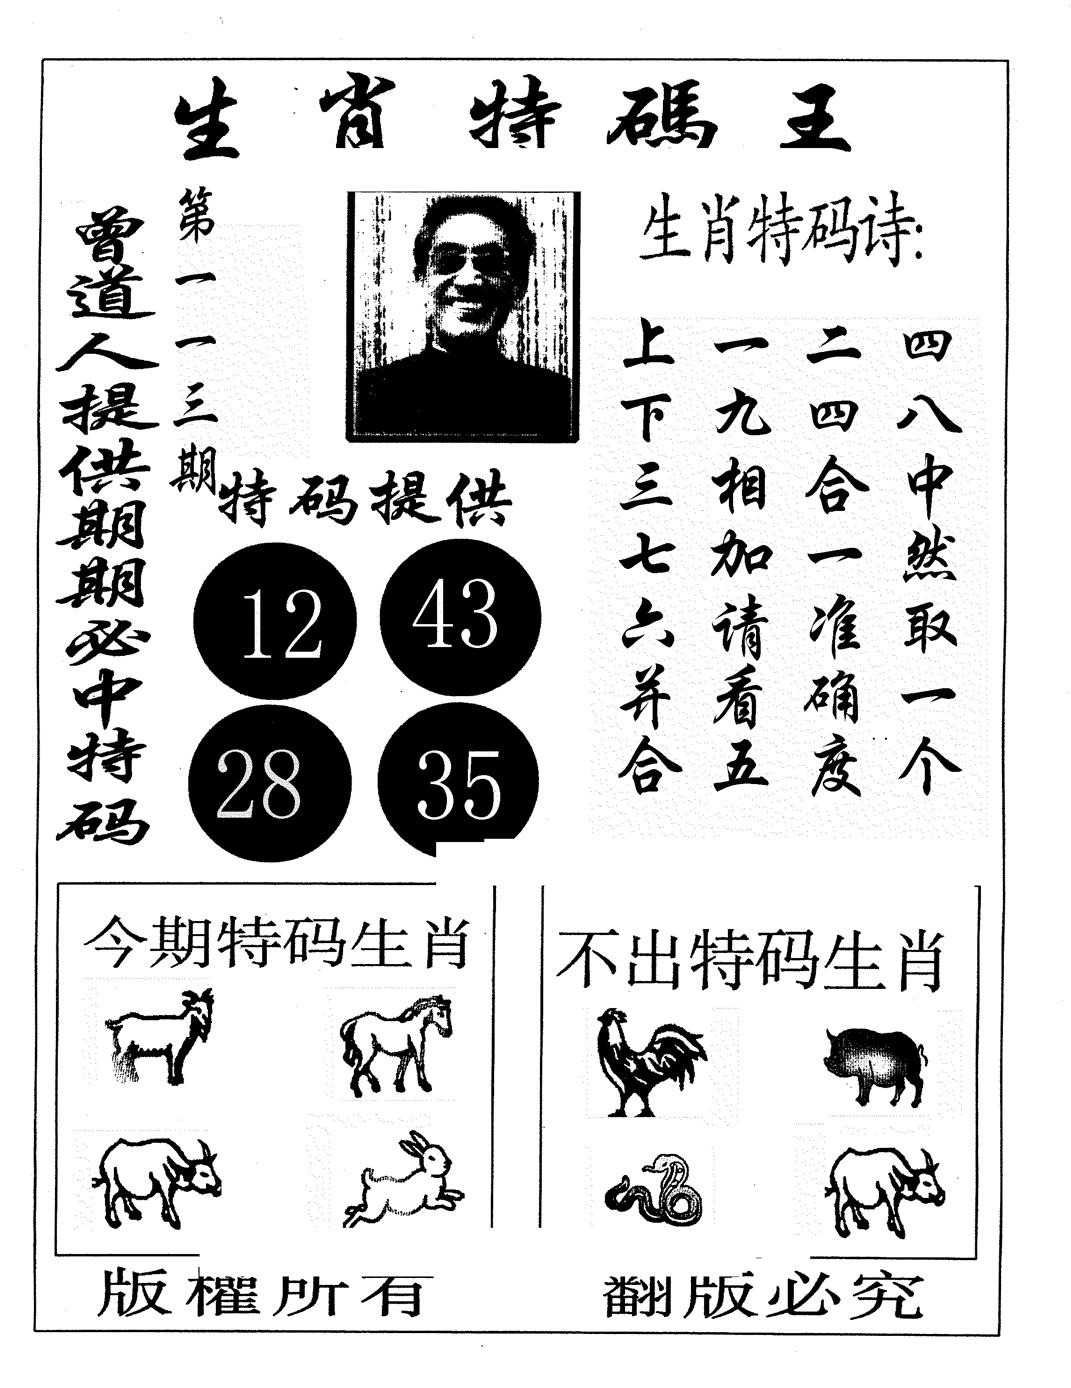 生肖特碼王
曾道人提供期期必中特码
第一一三期
生肖特码诗:
上下三七六并合
一九相加请看五
二四合一准确度
四八中然取一个
特码提供
12 43
28 35
今期特码生肖
不出特码生肖
版權所有
翻版必究